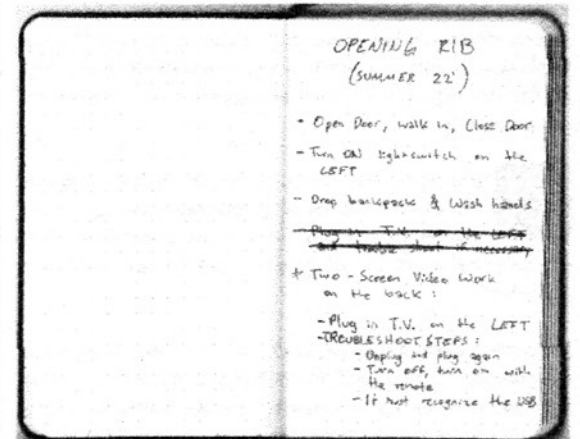 OPENING RIB
(SUMMER 22')
- Open Door, walk in, Close Door
- Turn ON lightswitch on the
LEFT
- Drop backpack & Wash hands
- Plug in T.V. on the LEFT
and trouble shoot if necessary
* Two-Screen Video Work
on the back :
- Plug in T.V. on the LEFT
- TROUBLESHOOT STEPS :
- Unplug and plug again
- Turn off, turn on with
the remote
- It must recognize the USB